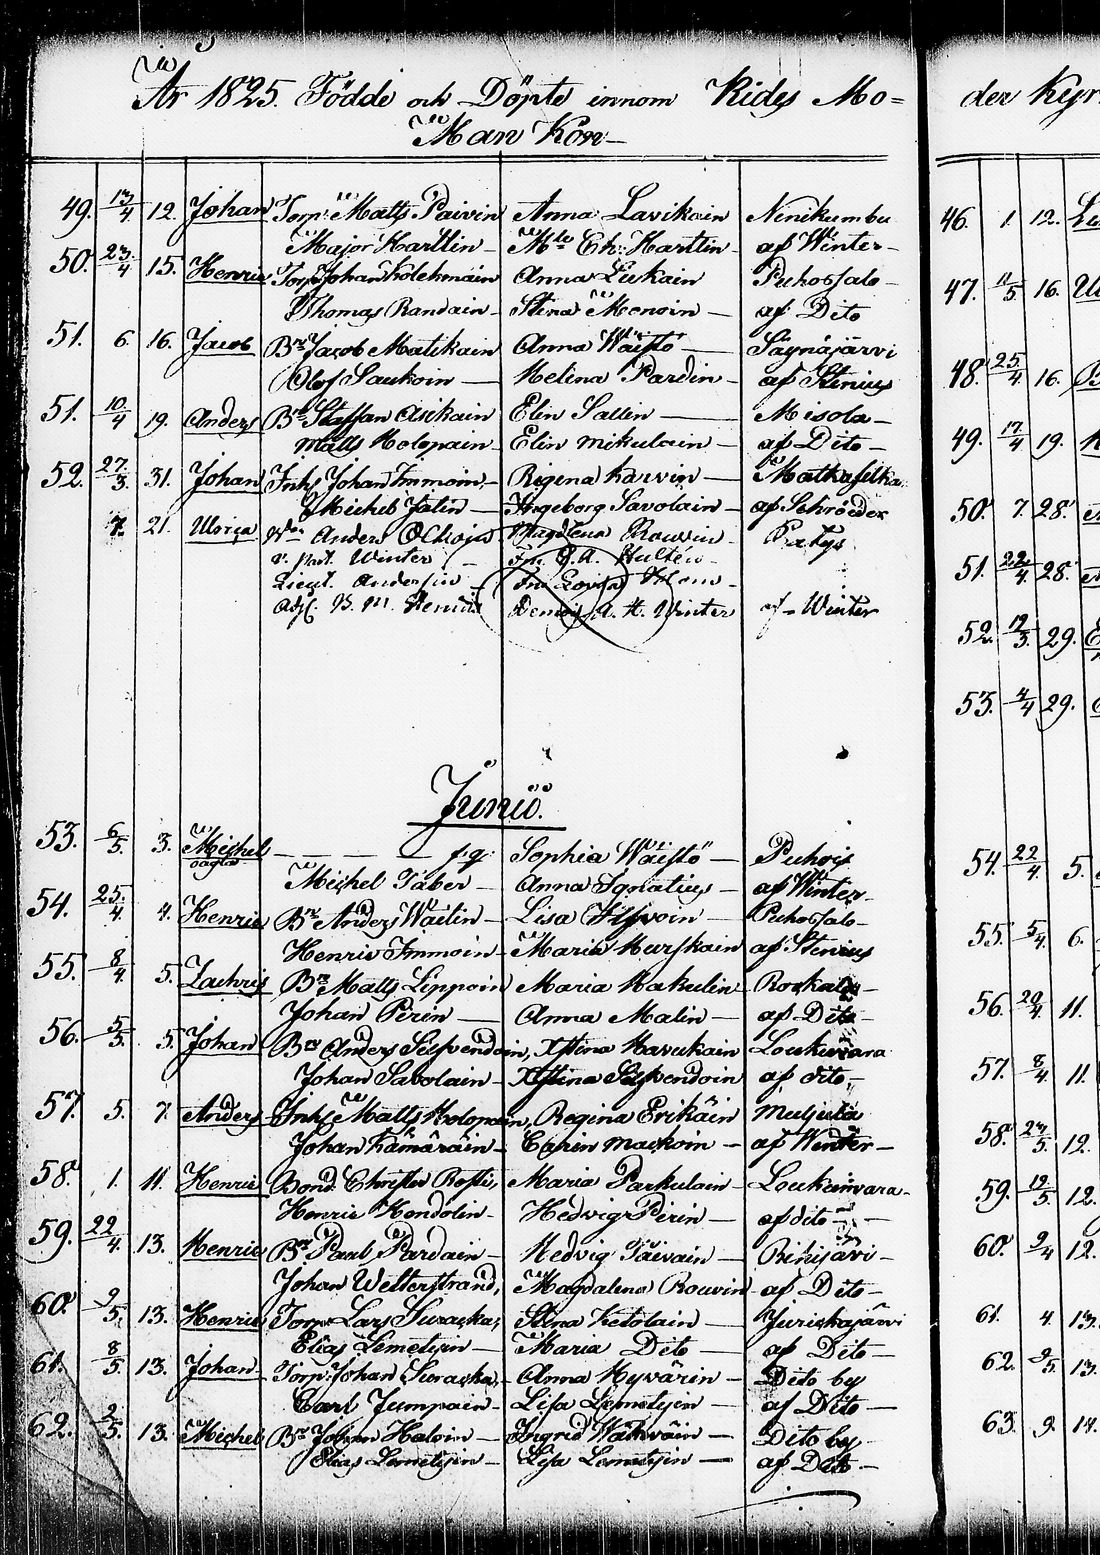 År 1825. Födde och Döpte innom Kides Mo=
Man Kön
49. 13/4 12. Johan Torp. Matts Paivin Anna Lavikain Nenikumbu
Major Karttin Mlle Eh: Karttin af Winter
50. 23/4 15. Henric Torp Johan Kolehmain Anna Liukain Puhossalo
Thomas Randain Stina Menoin af Dito
51. 6. 16. Jacob Bn Jacob Matikain Anna Wäistö Säynäjärvi
Olof Saukoin Helina Pardin af Stenius
51. 10/4 19. Anders Bn Staffan Asikain Elin Sallin Misola
Matts Holopain Elin Mikulain af Dito
52. 27/3. 31. Johan Inhs Johan Immoin Regina Karvin Matkaselka
Michel Jalin Ingeborg Savolain af Schröeder
7. 21. Ulrica Anders Magdlena Rouvin
v. Past. Winter Fru G. A. Hultén
Lieut. Andersin Fru Lovisa
B. M. A. H. Winter af Winter
Junii.
53. 6/5. 3. Michel pg: Sophia Wäistö Puhois
oägta
Michel Taber Anna Ignatius af Winter
54. 25/4. 4. Henric Bn Anders Waitin Lisa Puhossalo
Henric Immoin Maria Hurskain af Stenius
55. 8/4 5. Zachris Bn Matts Lippoin Maria Makulin
Johan Perin Anna Malin af Dito
56. 5/5. 5. Johan Bn Anders Silfvendoin, Xstina Havukain Loukunvara
Johan Savolain Xstina Silfvendoin af dito
57. 5. 7. Anders Inhs Matts Holopain, Regina Erikäin Muljula
Johan Kämäräin Carin Mackoin af Winter
58. 1. 11. Henric Bond Christer Rosti, Maria Parkulain Loukunvara
Henric Kondolin Hedvig Perin af dito
59. 22/4. 13. Henric Bn Paul Pardain Hedvig Päivain Rihijärvi
Johan Wetterstrand, Magdalena Rouvin af Dito
60. 9/5. 13. Henric Torp Lars Suraska, Stina Ketolain Juriskajärvi
Elias Lemetisin Maria Dito af Dito
61. 8/5 13. Johan Torp. Johan Suraska, Anna Hyvärin Dito by
Carl Jumpain Lisa Lemetisin af Dito
62. 2/5. 13. Michel Bn Johan Haloin Ingrid Wäkeväin Dito by
Elias Lemetisin Lisa Lemetisin af Dito
der Kyr
46. 1. 12.
47. 11/5 16.
48. 25/4 16.
49. 17/4 19.
50. 7. 28.
51. 22/4 28.
52. 12/3. 29.
53. 4/4 29.
54. 22/4 5.
55. 5/4. 6.
56. 20/4. 11.
57. 8/4 11.
58. 23/5. 12.
59. 12/5 12.
60. 2/4 12.
61. 4. 13.
62. 9/5 13.
63. 9. 14.